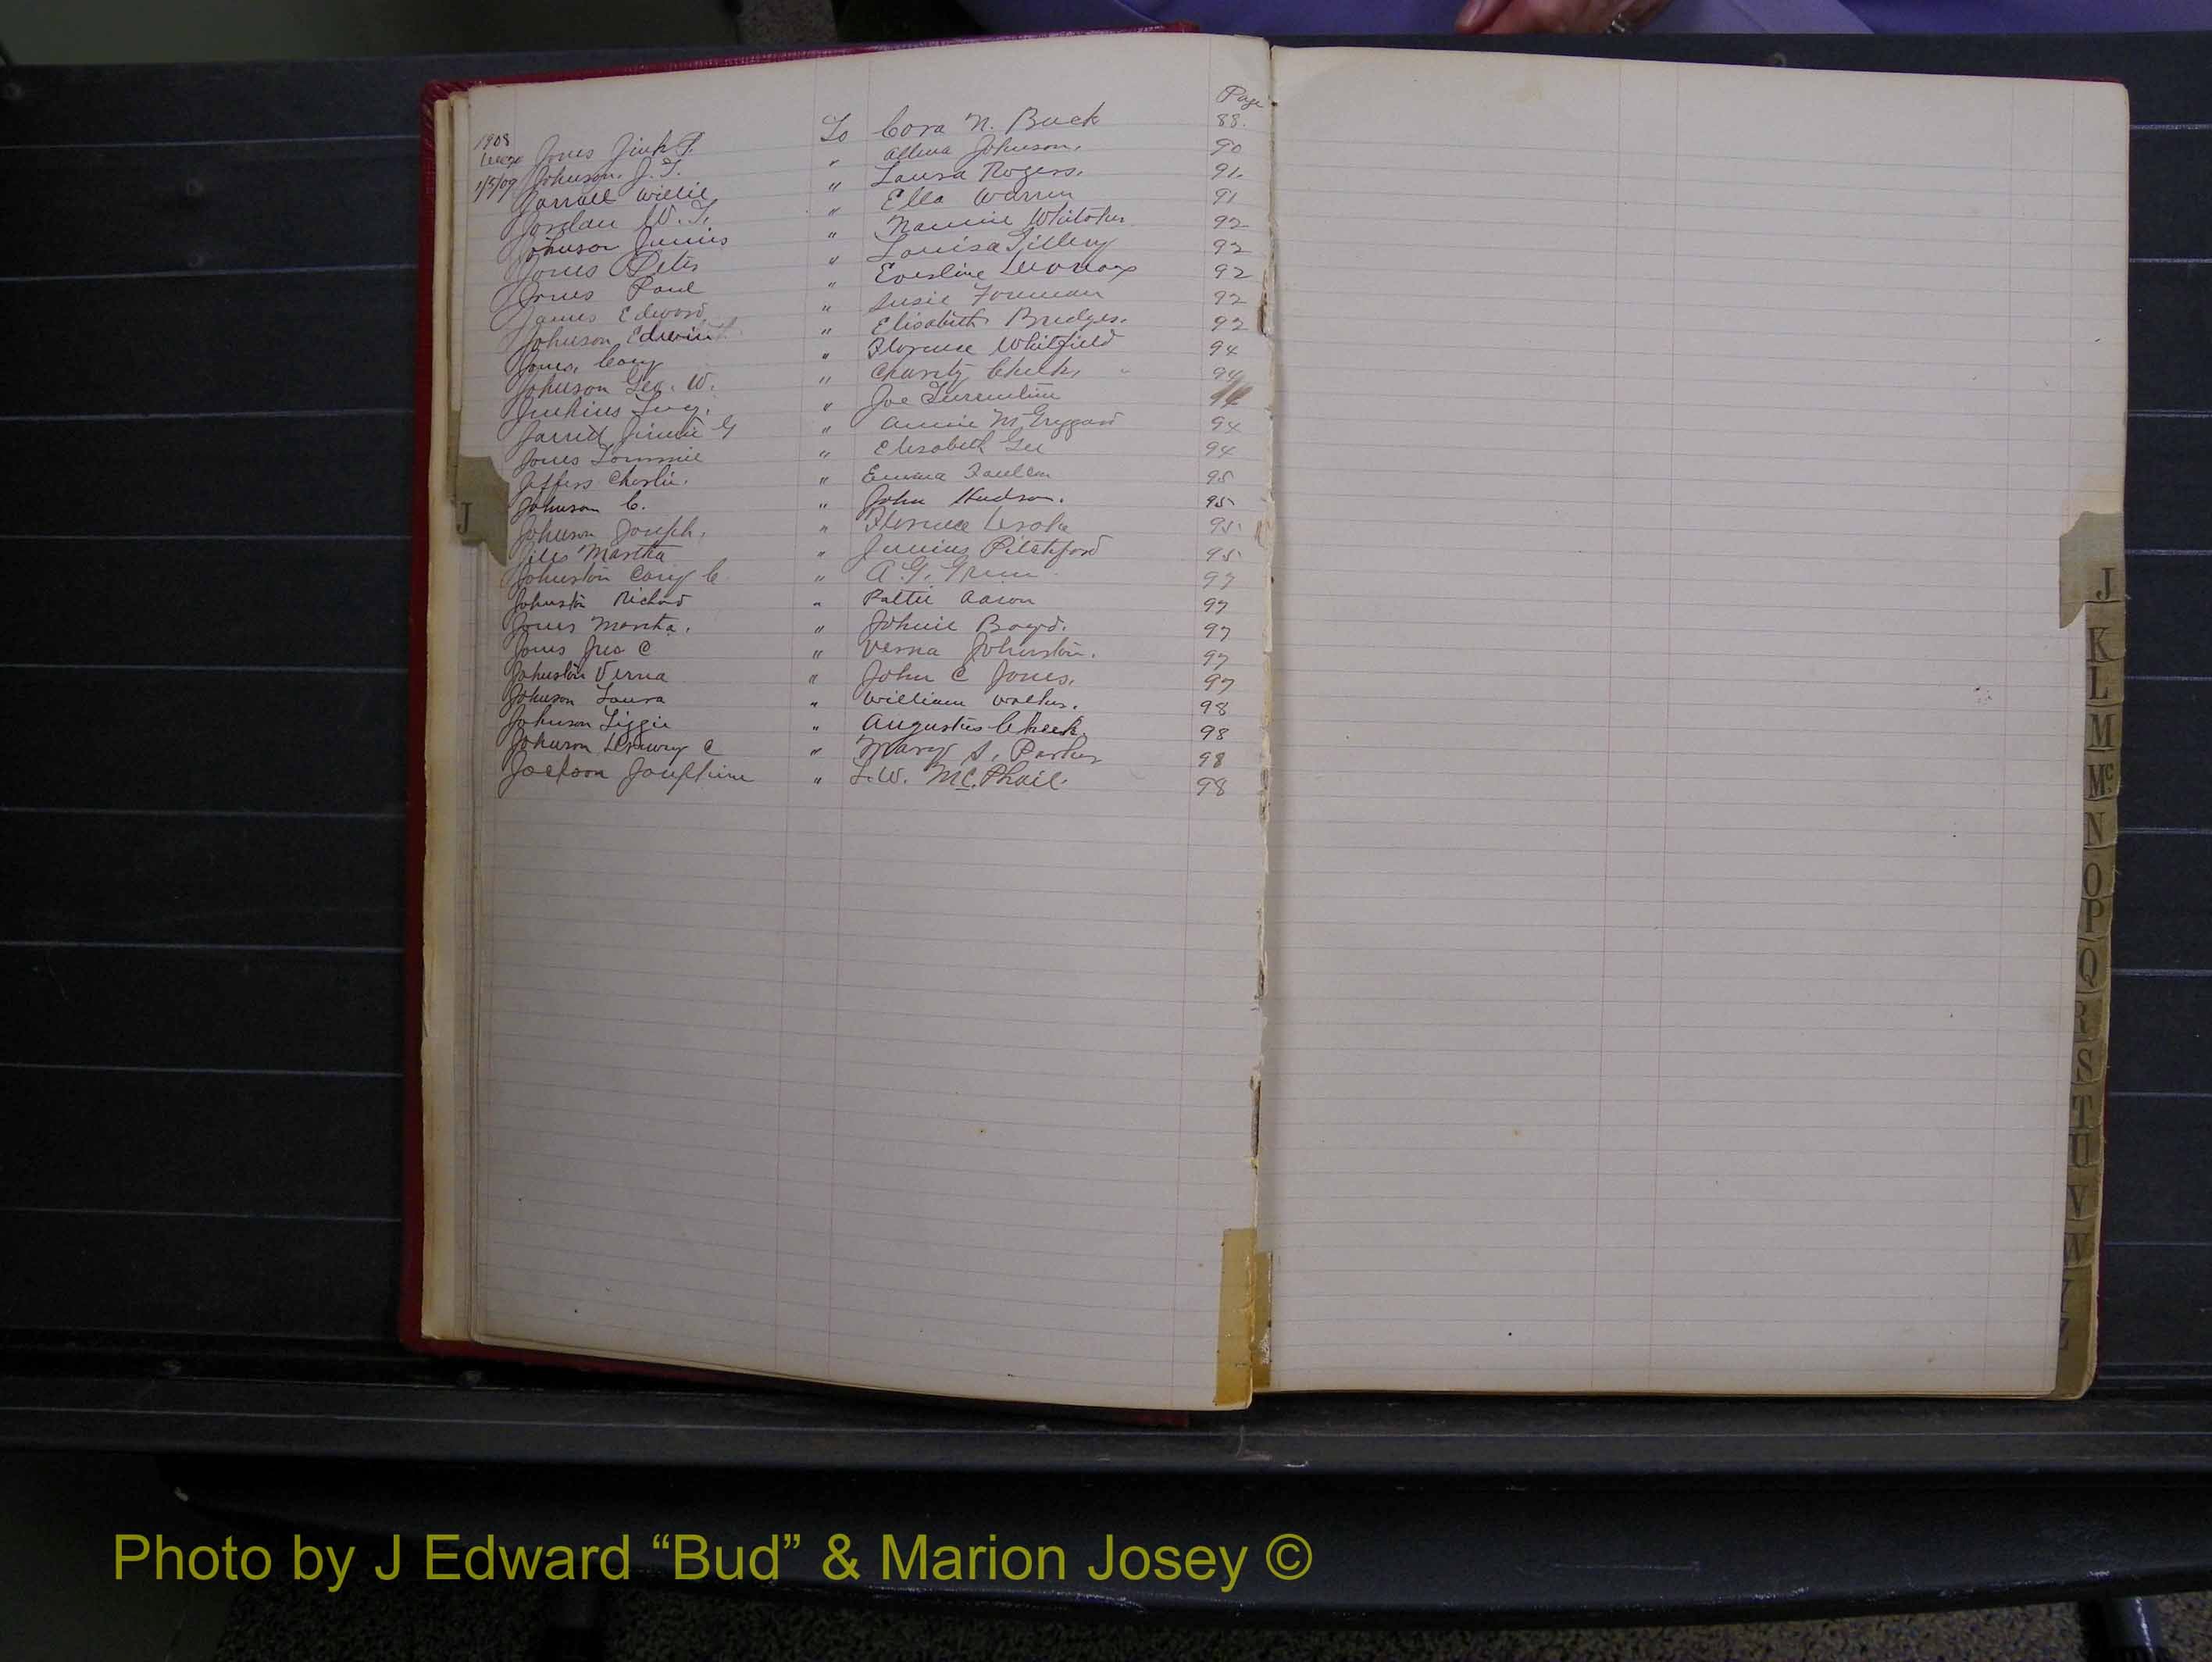 Page
1908 Jones Jink P. To Cora N. Buck 88.
1/5/09 Johnson, J. T. " Johnson, 90
Willie " Laura Rogers, 91.
Jordan W. T. " Ella Warren 91
Johnson Junius " Nannie Whitaker 92
Jones Peter " Louisa Tillery 92
Jones Paul " Eveline 92
James Edward " Susie Foreman 92
Johnson, Edwin " Elisabeth Bridges. 92
Jones, Cary " Florence Whitfield 94
Johnson Geo. W. " Charity Cheek, 94
Jenkins " Joe Turrentine
Jarrell Jimmie G " Annie 94
Jones Tommie " Elisabeth Gee 94
Jeffers Charlie. " Emma Faulcon 95
Johnson C. " John Hudson. 95
J
Johnson Joseph, " Florence 95
Martha " Junius Pitchford 95
Johnston Cary C. " A. G. 97
Johnston Richard " Pattie Aaron 97
Jones Martha. " Johnie Boyd. 97
Jones Jno C " Verna Johnston. 97
Johnston Verna " John C Jones, 97
Johnson Laura " William Walker. 98
Johnson Lizzie " Augustus Cheek. 98
Johnson Drewry C " Mary S. Parker 98
Jackson Josephine " L. W. McPhail. 98
J
K
L
M
Mc
N
O
P
Q
R
S
T
U
V
W
Y
Z
Photo by J Edward “Bud” & Marion Josey ©